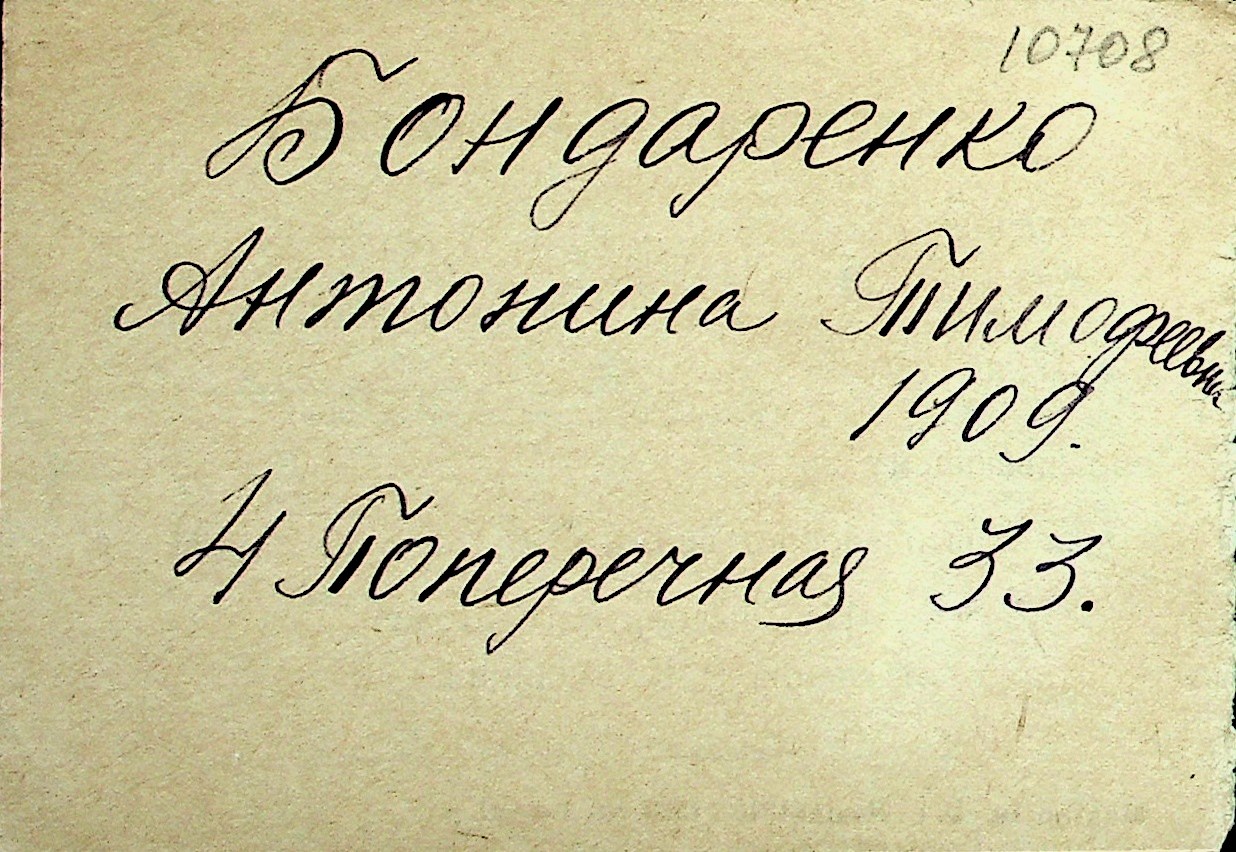 10708
Бондаренко
Антонина Тимофеевна
1909.
4 Поперечная 33.